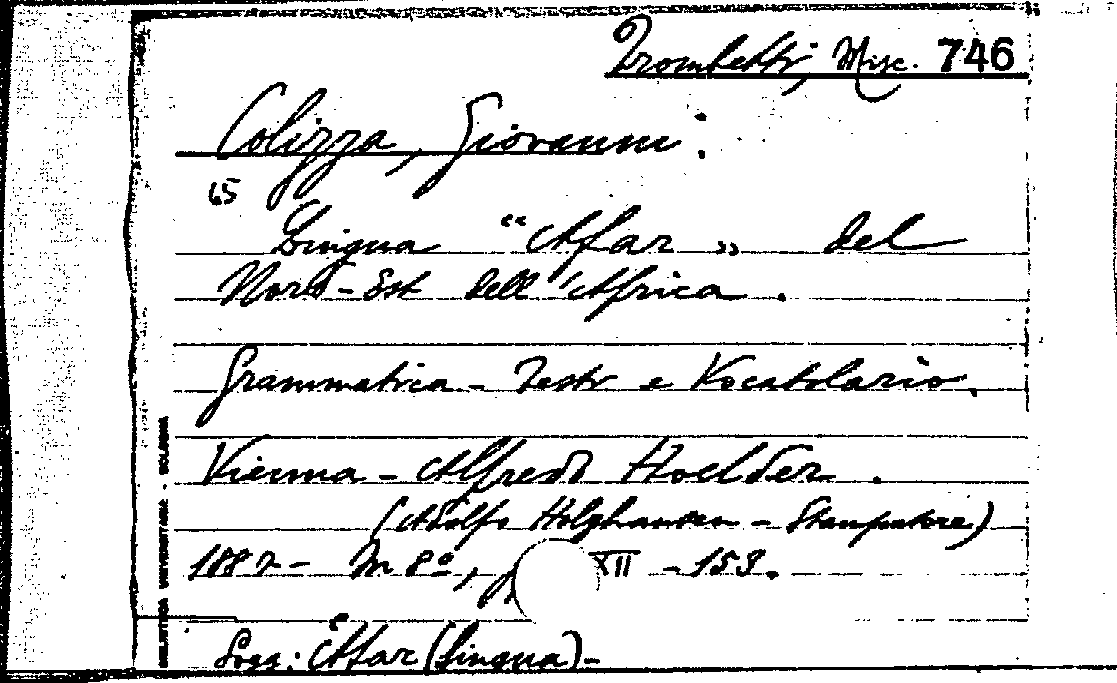 Trombetti, Misc. 746
Colizza, Giovanni:
65
Lingua "Afar" del
Nord-Est dell'Africa.
Grammatica - Testi e Vocabolario.
Vienna - Alfredo Hoelder.
(Adolfo Holzhausen - Stampatore)
1887 - In 8º, p XII - 153.
Sogg: Afar (Lingua) -
BIBLIOTECA UNIVERSITARIA - BOLOGNA